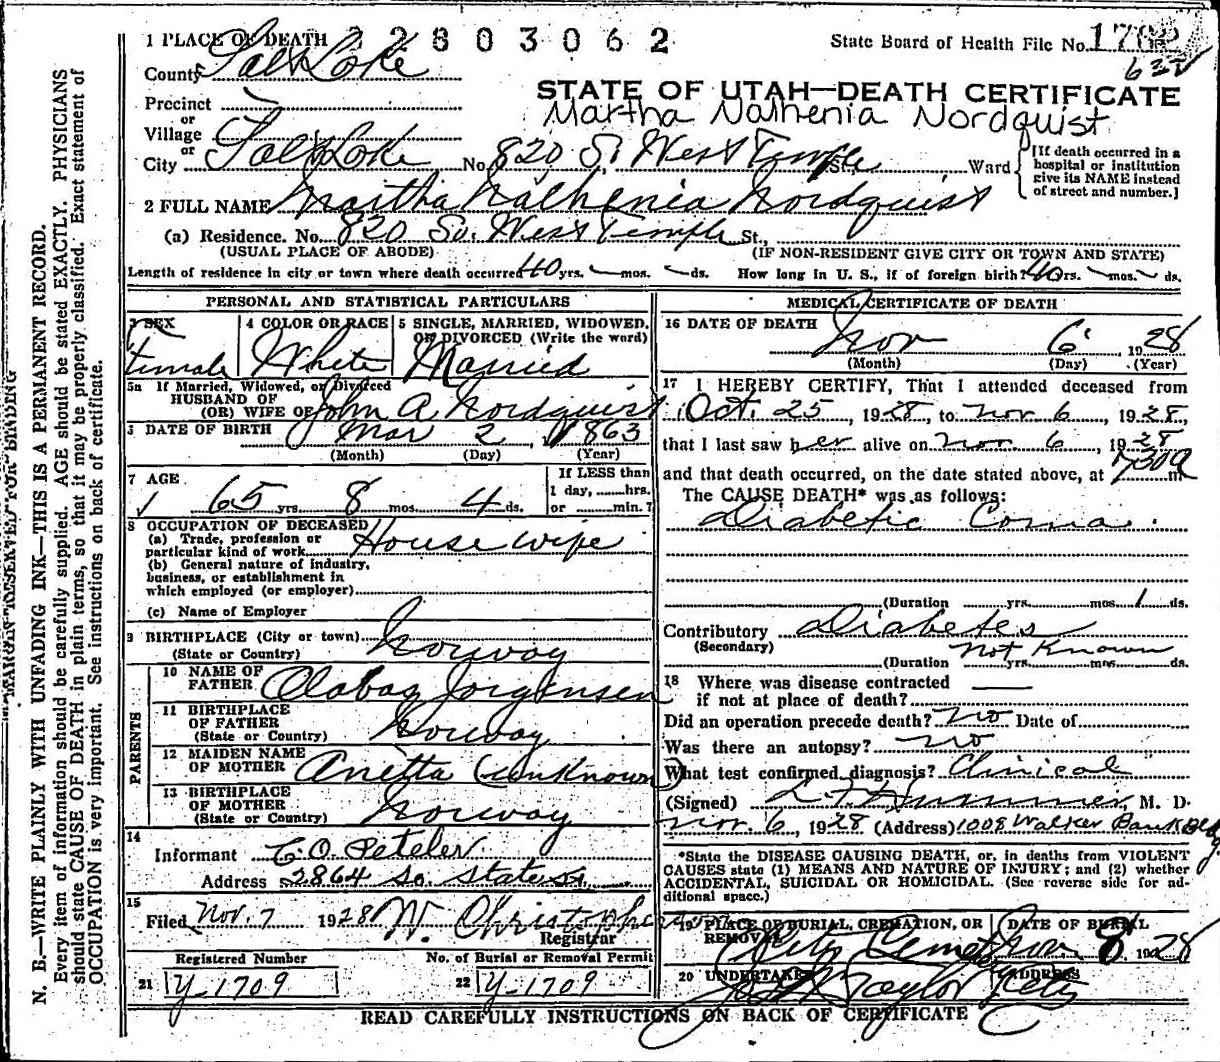 1 PLACE OF DEATH 2 8 0 3 0 6 2
State Board of Health File No.
County Salt Lake
622
STATE OF UTAH—DEATH CERTIFICATE
Precinct
Martha Nathenia Nordquist
or
Village
or
City Salt Lake No. 820 S. West Temple St., Ward
[If death occurred in a hospital or institution give its NAME instead of street and number.]
2 FULL NAME Martha Nathenia Nordquist
(a) Residence. No. 820 So. West Temple St.,
(USUAL PLACE OF ABODE) (IF NON-RESIDENT GIVE CITY OR TOWN AND STATE)
Length of residence in city or town where death occurred 40 yrs. — mos. — ds. How long in U. S., if of foreign birth? 40 yrs. — mos. — ds.
PERSONAL AND STATISTICAL PARTICULARS
3 SEX
Female
4 COLOR OR RACE
White
5 SINGLE, MARRIED, WIDOWED,
OR DIVORCED (Write the word)
Married
5a If Married, Widowed, or Divorced
HUSBAND OF
(OR) WIFE OF John A Nordquist
DATE OF BIRTH Mar 2, 1863
(Month) (Day) (Year)
7 AGE
65 yrs. 8 mos. 4 ds.
If LESS than
1 day, hrs.
or min.?
8 OCCUPATION OF DECEASED
(a) Trade, profession or
particular kind of work Housewife
(b) General nature of industry,
business, or establishment in
which employed (or employer)
(c) Name of Employer
9 BIRTHPLACE (City or town)
(State or Country) Norway
PARENTS
10 NAME OF
FATHER Jorgensen
11 BIRTHPLACE
OF FATHER
(State or Country) Norway
12 MAIDEN NAME
OF MOTHER Anetta (unknown)
13 BIRTHPLACE
OF MOTHER
(State or Country) Norway
14
Informant C. O. Peteler
Address 2864 So. State St.
15
Filed Nov. 7 1928 W. Christopherson
Registrar
Registered Number No. of Burial or Removal Permit
21 Y-1709 22 Y-1709
MEDICAL CERTIFICATE OF DEATH
16 DATE OF DEATH
Nov 6 1928
(Month) (Day) (Year)
17 I HEREBY CERTIFY, That I attended deceased from
Oct. 25, 1928, to Nov 6, 1928,
that I last saw her alive on Nov. 6, 1928
and that death occurred, on the date stated above, at 730a m
The CAUSE DEATH* was as follows:
Diabetic Coma.
(Duration yrs. mos. 1 ds.
Contributory Diabetes
(Secondary) Not Known
(Duration yrs. mos. ds.
18 Where was disease contracted
if not at place of death? —
Did an operation precede death? No Date of
Was there an autopsy? No
What test confirmed diagnosis? Clinical
(Signed) L. F. Hummer, M. D.
Nov. 6, 1928 (Address) 1008 Walker Bank Bldg
*State the DISEASE CAUSING DEATH, or, in deaths from VIOLENT
CAUSES state (1) MEANS AND NATURE OF INJURY; and (2) whether
ACCIDENTAL, SUICIDAL OR HOMICIDAL. (See reverse side for ad-
ditional space.)
19 PLACE OF BURIAL, CREMATION, OR
REMOVAL
City Cemet
DATE OF BURIAL
Nov. 8 1928
20 UNDERTAKER
Taylor
ADDRESS
City
READ CAREFULLY INSTRUCTIONS ON BACK OF CERTIFICATE
MARGIN RESERVED FOR BINDING
N. B.—WRITE PLAINLY WITH UNFADING INK—THIS IS A PERMANENT RECORD.
Every item of information should be carefully supplied. AGE should be stated EXACTLY. PHYSICIANS
should state CAUSE OF DEATH in plain terms, so that it may be properly classified. Exact statement of
OCCUPATION is very important. See instructions on back of certificate.